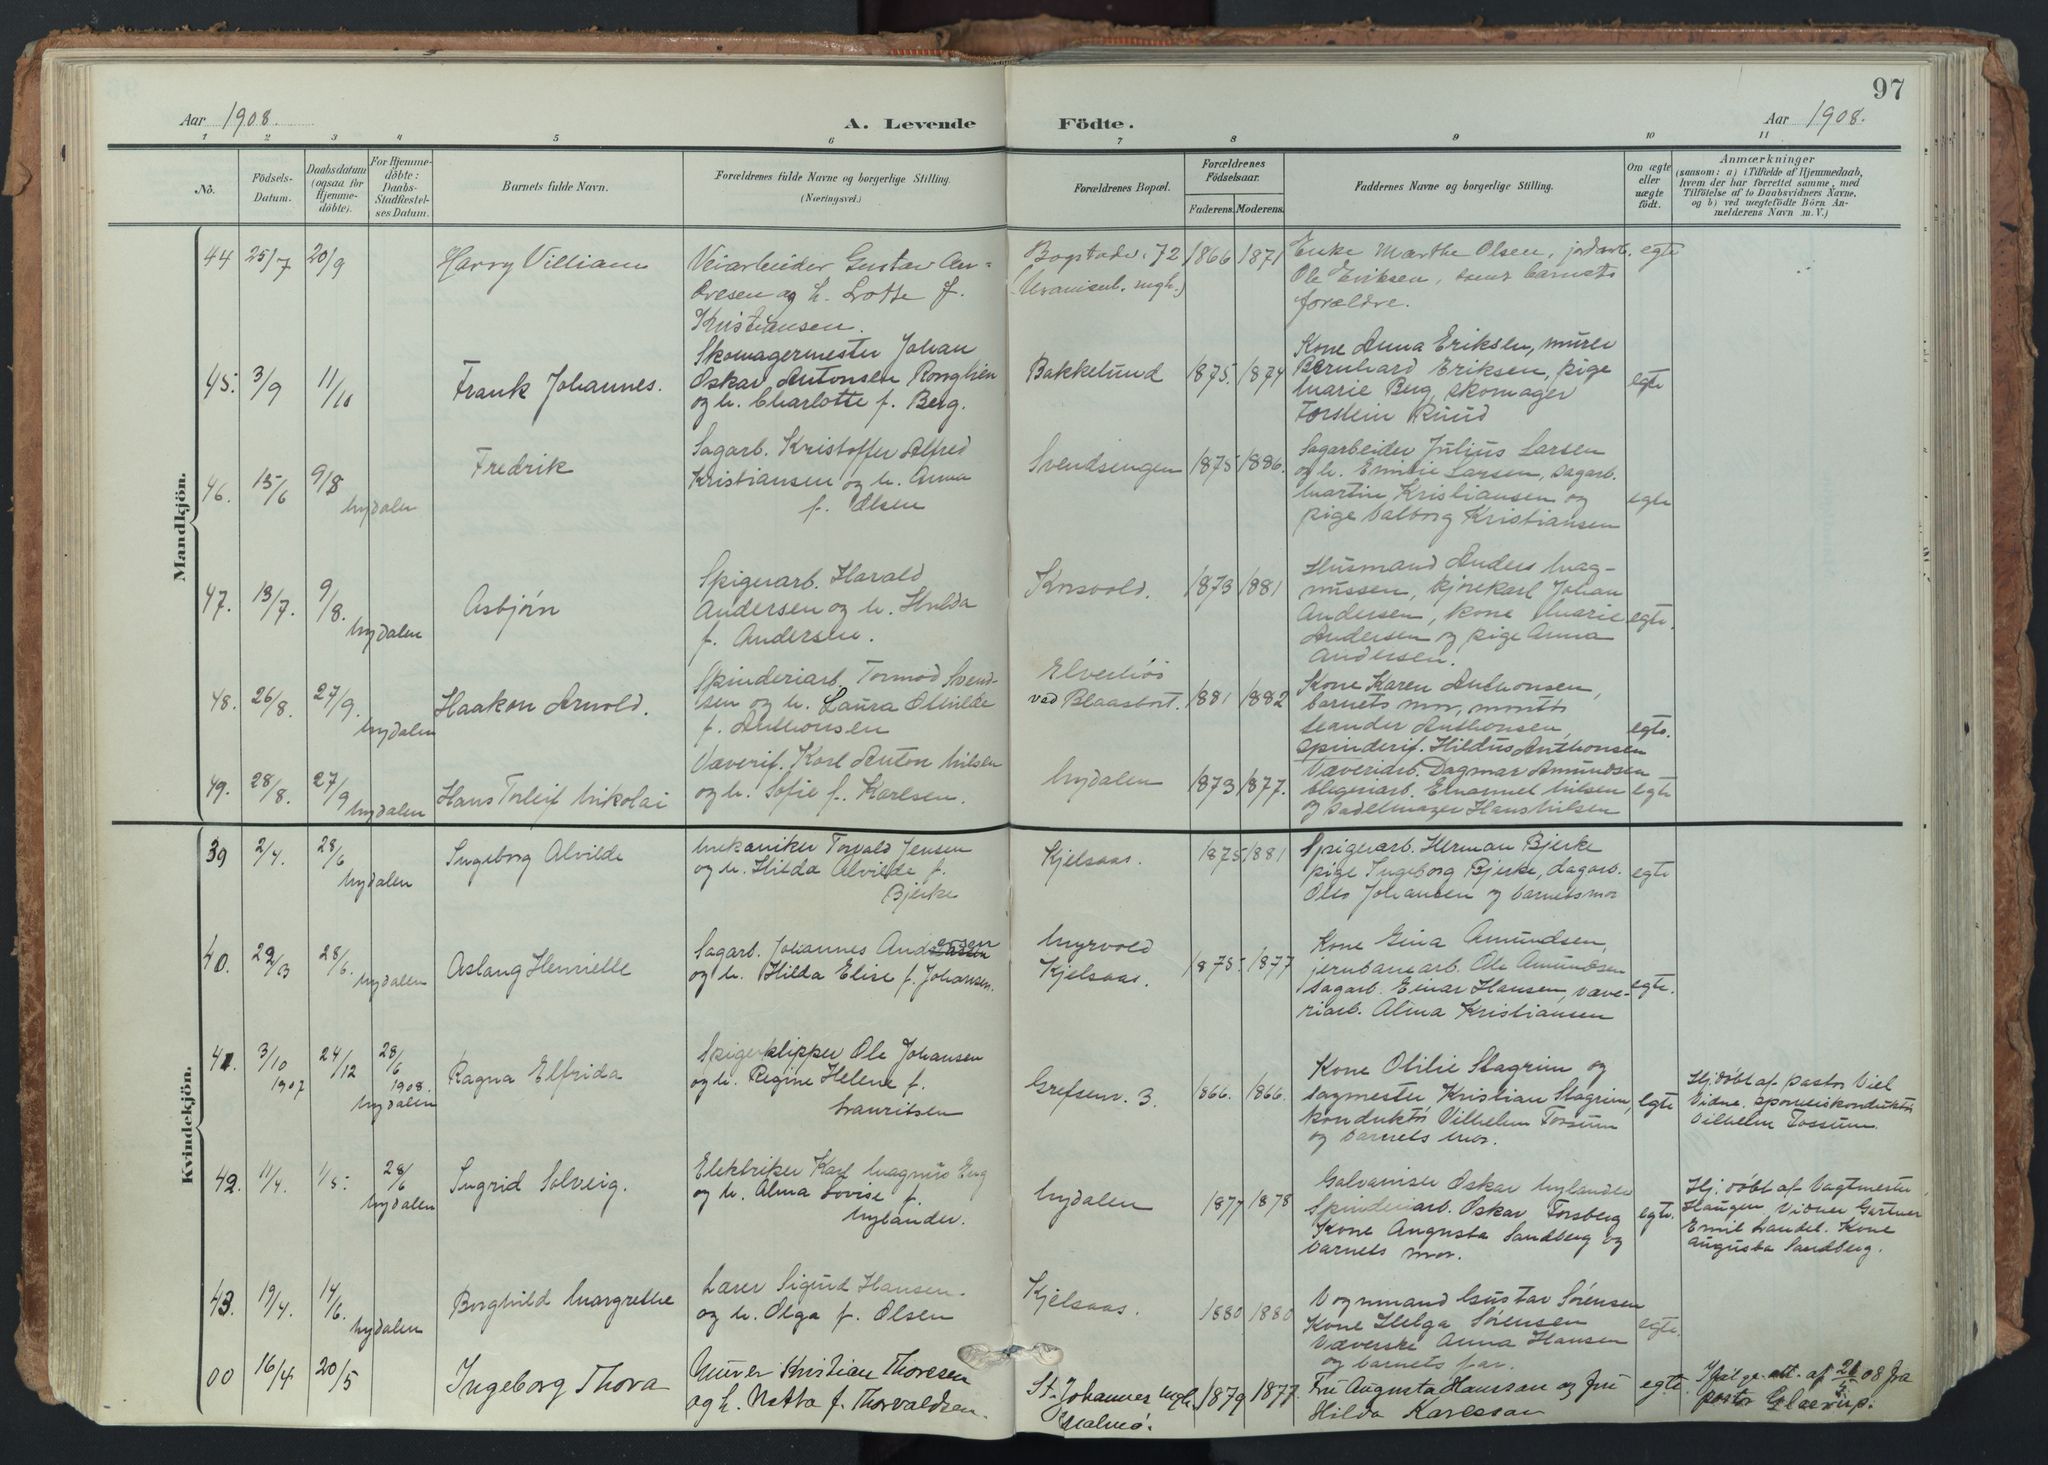 97
Aar 1908. A. Levende Födte. Aar 1908.
1 2 3 4 5 6 7 8 9 10 11
No.
Födsels-
Datum.
Daabsdatum
(ogsaa for
Hjemme-
döbte).
For Hjemme-
döbte:
Daabs-
Stadfæstel-
ses Datum.
Barnets fulde Navn.
Forældrenes fulde Navne og borgerlige Stilling.
(Næringsvei.)
Forældrenes Bopæl.
Forældrenes
Födselsaar.
Faderens. Moderens.
Faddernes Navne og borgerlige Stilling.
Om ægte
eller
uægte
födt.
Anmærkninger
(saasom: a) i Tilfælde af Hjemmedaab,
hvem der har forrettet samme, med
Tilföielse af to Daabsvidners Navne,
og b) ved uægtefödte Börn An-
melderens Navn m. V.)
Mandkjön.
44 25/7 20/9 Harry Villiam
Veiarbeider Gustav An-
dresen og h. Lotte f.
Kristiansen.
Bogstadv. 72
1866 1871
Enke Marthe Olsen, jordarb.
Ole Eriksen, samt barnets
forældre.
egte
45. 3/9 11/10 Frank Johannes.
Skomagermester Johan
Oskar Antonsen Ronglien
og h. Charlotte f. Berg.
Bakkelund 1875. 1874
Kone Anna Eriksen, murer
Bernhard Eriksen, pige
Marie Berg, skomager
Torstein Ruud
egte
46. 15/6 9/8 Nydalen Fredrik
Sagarb. Kristoffer Alfred
Kristiansen og h. Anna
f. Olsen
Svendsengen 1875 1886.
Sagarbeider Julius Larsen
og h. Emilie Larsen, sagarb.
Martin Kristiansen og
pige Valborg Kristiansen
egte
47. 13/7. 9/8. Nydalen Asbjørn
Spigerarb. Harald
Andersen og h. Hulda
f. Andersen.
Korsvold. 1873 1881
Husmand Anders Mag-
nussen, kjørekarl Johan
Andersen, kone Marie
Andersen og pige Anna
Andersen.
egte.
48. 26/8. 27/9. Nydalen Haakon Arnold.
Spinderiarb. Tormod Svend-
sen og h. Laura Otilde
f. Anthonsen
Elverhøi
ved Blaasbort. 1881 1882
Kone Karen Anthonsen,
barnets mor, montør
Leander Anthonsen,
spinderif. Hildus Anthonsen
egte.
49. 28/8. 27/9 Nydalen Hans Torleif Nikolai
Væverif. Karl Anton Nilsen
og h. Sofie f. Karlsen.
Nydalen 1873 1877.
Væveriarb. Dagmar Amundsen
blegeriarb. Emanuel Nilsen
og sadelmager Hans Nilsen
egte
Kvindekjön.
39 2/4. 28/6 Nydalen Ingeborg Alvilde
Mekaniker Torvald Jensen
og h. Hilda Alvilde f.
Bjerke
Kjelsaas. 1875 1881
Spigerarb. Herman Bjerke
pige Ingeborg Bjerke, dagarb.
Oles Johansen og barnets mor
egte
40. 22/3 28/6. Nydalen Aslaug Henrielle
Sagarb. Johannes Andersen
og h. Hilda Elise f. Johansen.
Myrvold
Kjelsaas. 1875 1877
Kone Gina Amundsen,
jernbanearb. Ole Amundsen
sagarb. Einar Hansen, væve-
riarb. Alma Kristiansen
egte.
41. 3/10 1907 24/12 28/6 1908. Nydalen Ragna Elfrida
Spigerklipper Ole Johansen
og h. Regine Helene f.
Lauritsen
Grefsenv. 3. 1866. 1866.
Kone Otilie Stagrim og
sagmester Kristian Stagrim,
konduktør Vilhelm Tossum
og barnets mor.
egte
Hj.døbt af pastor Viel
Vidne. sporveiskonduktør
Vilhelm Tossum.
42. 11/4. 1/5. 28/6 Nydalen Ingrid Solveig.
Elektriker Karl Magnus Eng
og h. Alma Lovise f.
Nylander.
Nydalen 1877 1878
Galvanisør Oskar Nylander
Spinderiarb. Oskar Forsberg
Kone Augusta Sandberg og
barnets mor.
egte.
Hj. døbt af Vagtmester
Haugen, Vidner Gartner
Emil Landel. Kone
Augusta Sandberg.
43. 19/4. 14/6. Nydalen Borghild Margrethe
Lærer Sigurd Hansen
og h. Olga f. Olsen
Kjelsaas. 1880 1880
Vognmand Gustav Sörensen
Kone Helga Sörensen
Væverske Anna Hansen
og barnets far.
egte.
00 16/4 20/5 Ingeborg Thora
Murer Kristian Thoresen
og h. Netta f. Thorvaldsen.
St. Johannes mgh.
Malmö. 1879 1877.
Fru Augusta Hansson og fru
Hilda Karlsson
egte.
Ifölge att. af 08 fra
pastor Glaerup.